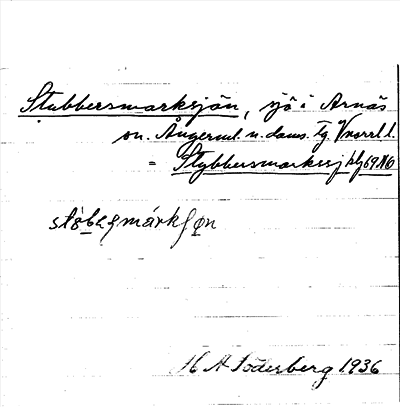 Stubbersmarksjön, sjö i Arnäs
sn. Ångerml. n. doms. tg Vnorrl. l.
= Stybbersmarkssj blj 69 NO
H A Söderberg 1936